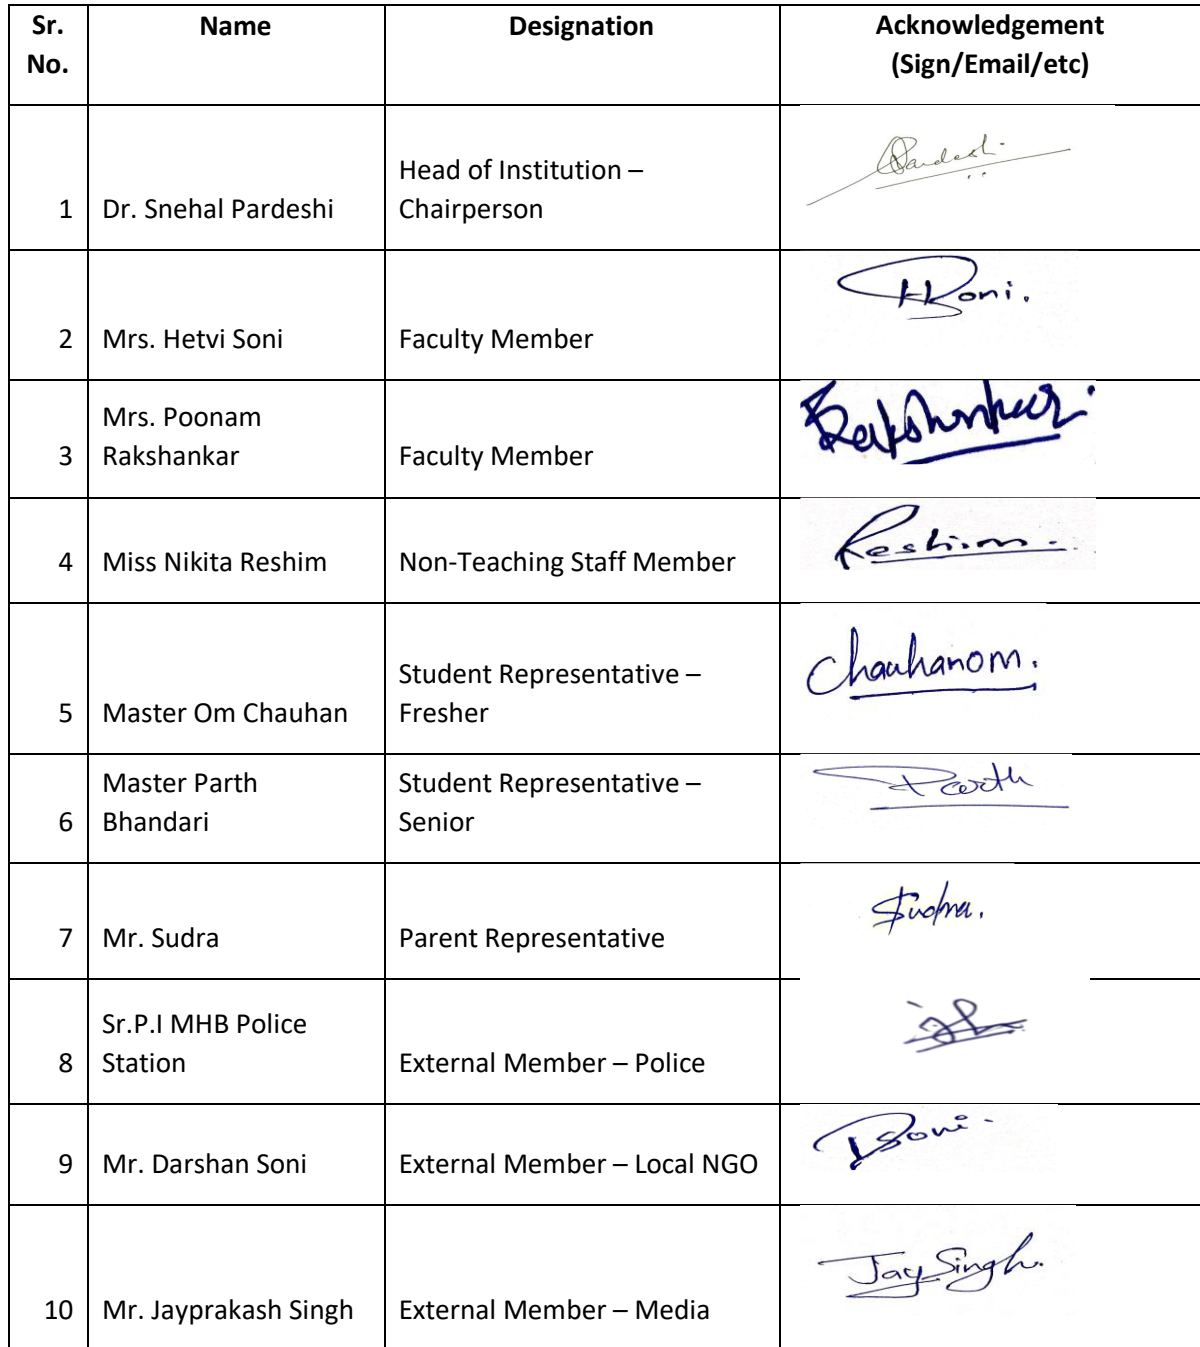 Sr. No. Name Designation Acknowledgement (Sign/Email/etc)
1 Dr. Snehal Pardeshi Head of Institution – Chairperson Pardeshi
2 Mrs. Hetvi Soni Faculty Member HSoni.
3 Mrs. Poonam Rakshankar Faculty Member Rakshankar.
4 Miss Nikita Reshim Non-Teaching Staff Member Reshim.
5 Master Om Chauhan Student Representative – Fresher Chauhanom.
6 Master Parth Bhandari Student Representative – Senior Parth
7 Mr. Sudra Parent Representative Sudra.
8 Sr.P.I MHB Police Station External Member – Police
9 Mr. Darshan Soni External Member – Local NGO DSoni.
10 Mr. Jayprakash Singh External Member – Media Jay Singh.